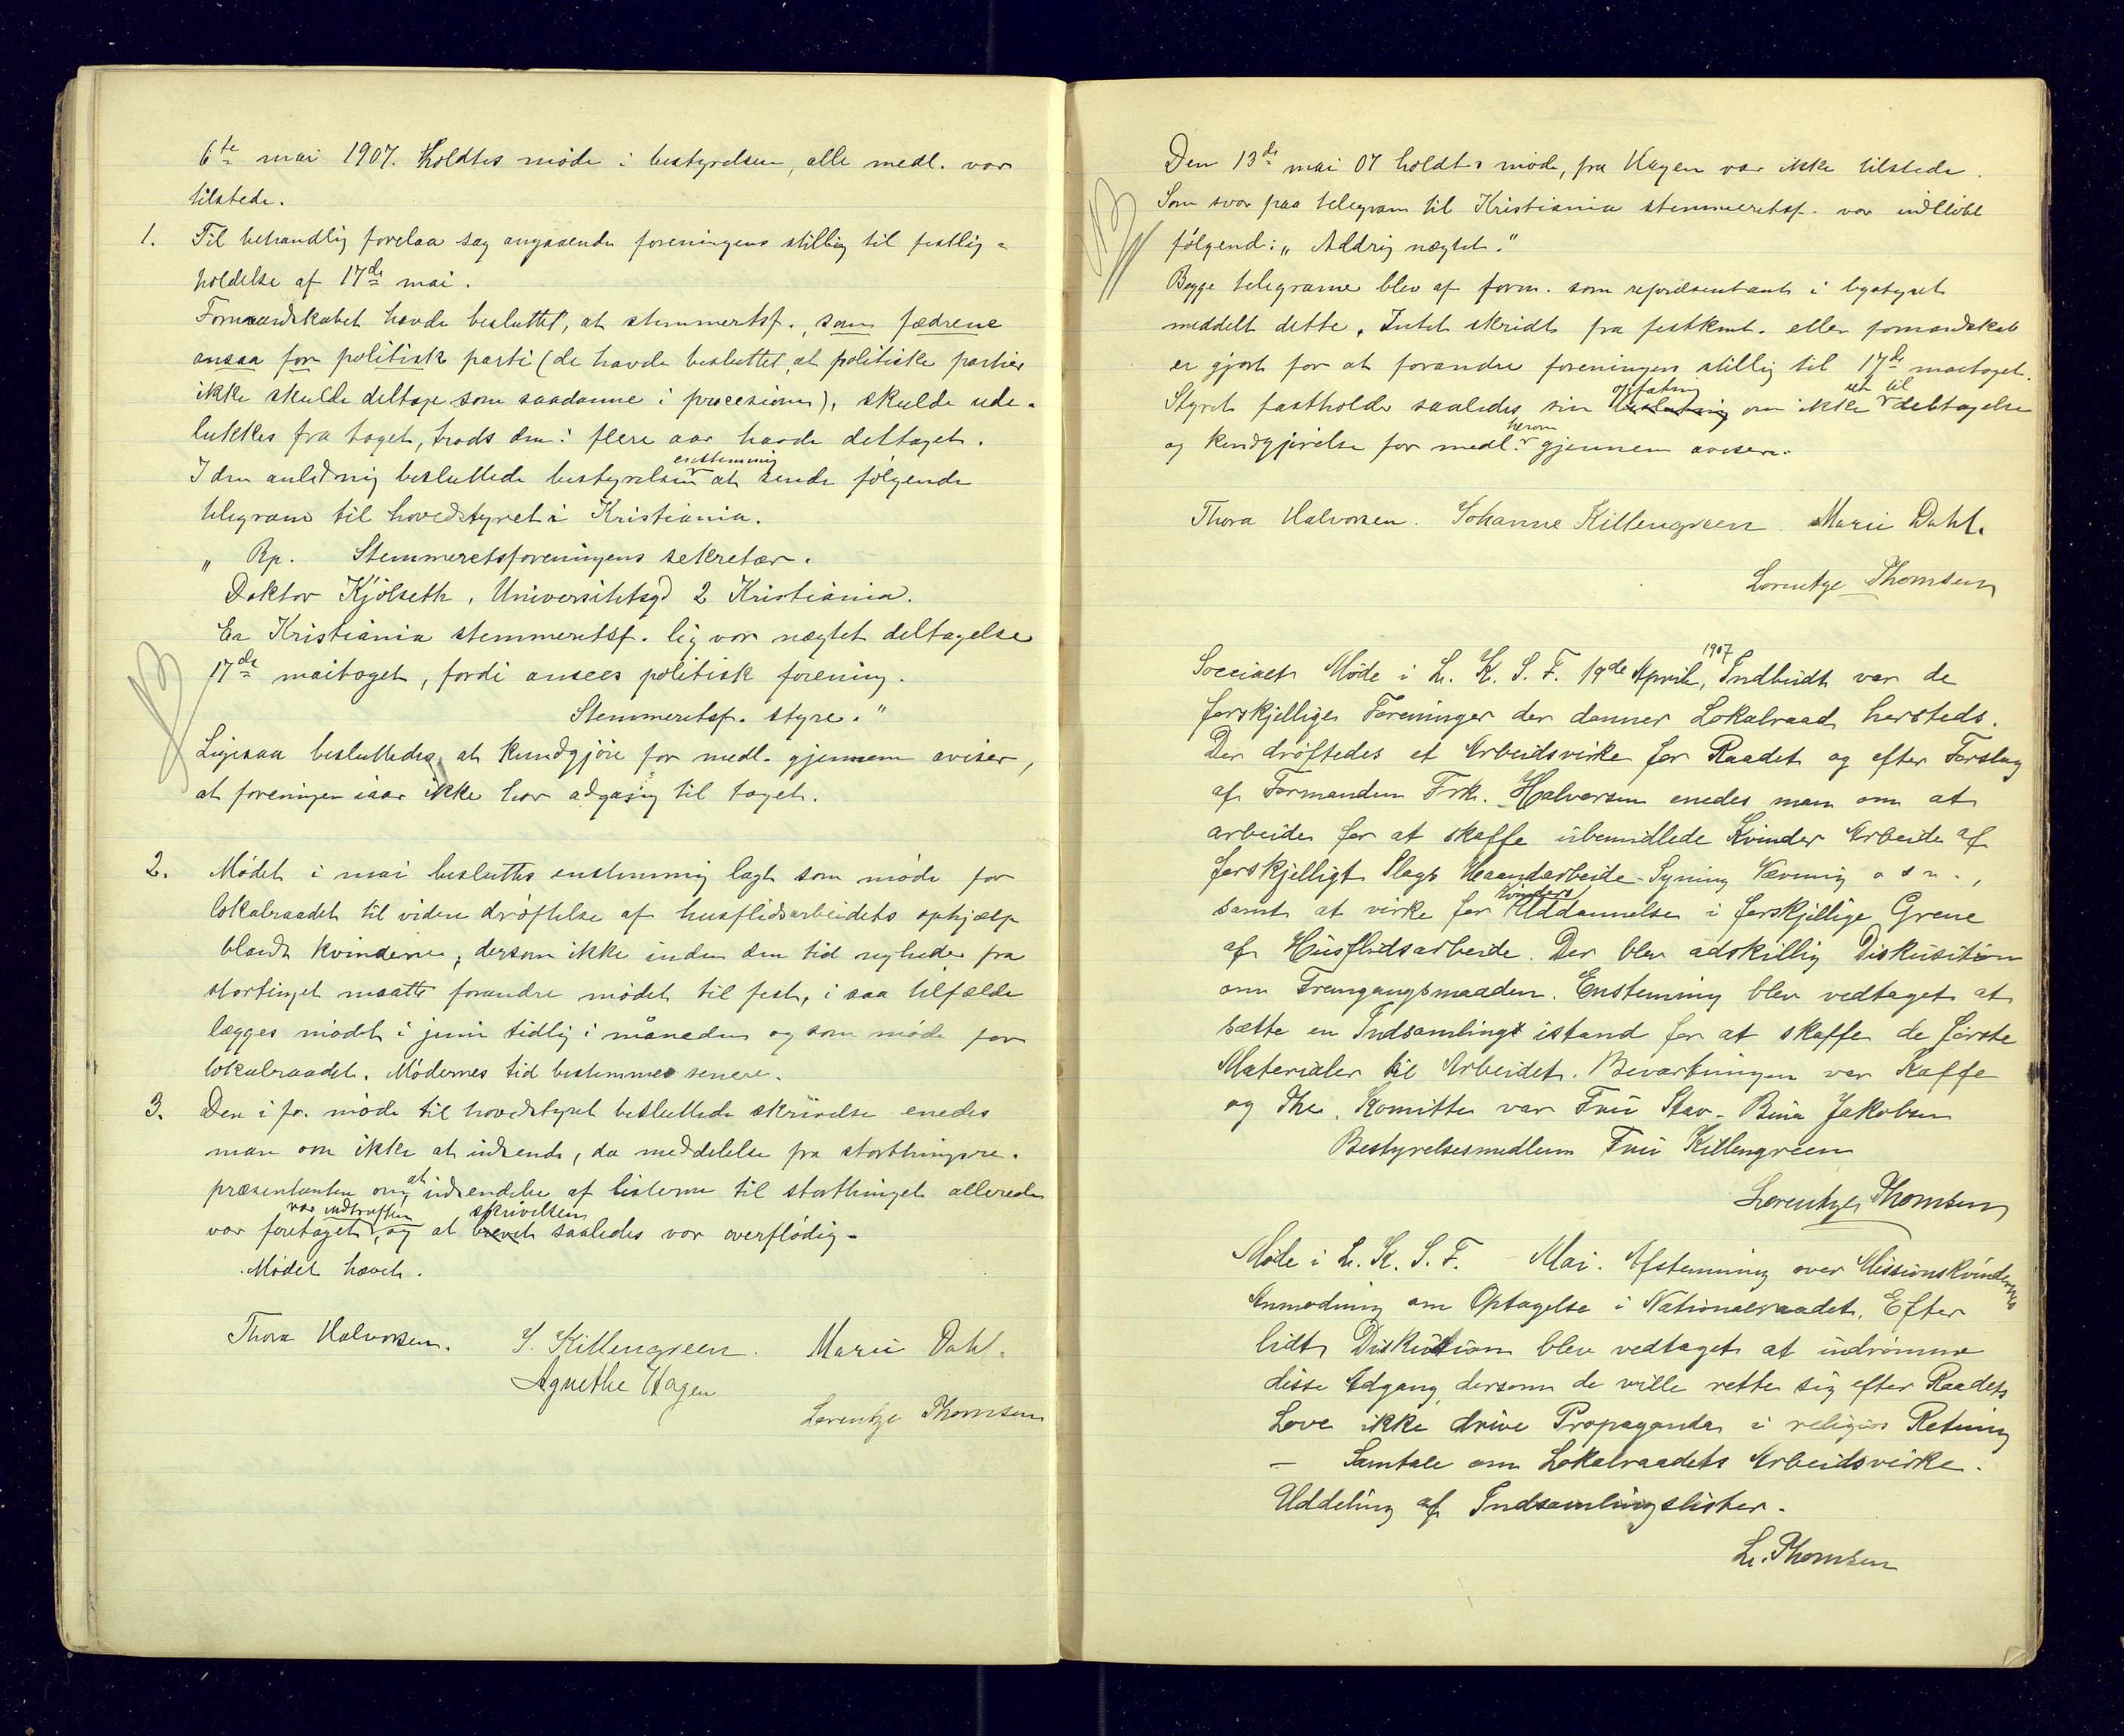 6te mai 1907. Holdtes møde i bestyrelsen, alle medl. var
tilstede.
1. Til behandlig forelaa sag angaaende foreningens stillig til festlig-
holdelse af 17de mai.
Formandskabet havde besluttet, at stemmeretsf., som fædrene
ansaa for politisk parti (de havde besluttet, at politiske partier
ikke skulde deltage som saadanne i procesionen), skulde ude-
lukkes fra toget, trods den i flere aar havde deltaget.
I den anledning besluttede bestyrelsen enstemmig at sende følgende
telegram til hovedstyret i Kristiania.
„ Rp. Stemmeretsforeningens sekretær.
Doktor Kjølseth, Universitetsgd 2 Kristiania.
Er Kristiania stemmeretsf. lig vor nægtet deltagelse
17de maitoget, fordi ansees politisk forening.
Stemmeretsf. styre."
NB
Ligesaa besluttedes at kundgjøre for medl. gjennem aviser,
at foreningen iaar ikke har adgang til toget.
2. Mødet i mai besluttes enstemmig lagt som møde for
lokalraadet til videre drøftelse af husflidsarbeidets ophjælp
blandt kvinderne, dersom ikke inden den tid nyheder fra
stortinget maatte forandre mødet til fest, i saa tilfælde
lægges mødet i juni tidlig i måneden og som møde for
lokalraadet. Mødernes tid bestemmes senere.
3. Den i fr. møde til hovedstyret besluttede skrivelse enedes
man om ikke at indsende, da meddelelse fra storthingsre-
præsentanten om, at indsendelse af listerne til storthinget allerede
var foretaget, var indtruffen og at brevet skrivelsen saaledes var overflødig.
Mødet hævet.
Thora Halvorsen. J. Killengreen. Marie Dahl.
Agnethe Hagen
Lorentze Thomsen
Den 13de mai 07 holdtes møde, fru Hagen var ikke tilstede.
NB
Som svar paa telegram til Kristiania stemmeretsf. var indløbet
følgende: „Aldrig nægtet."
Begge telegrame blev af form. som repræsentant i bystyret
meddelt dette. Intet skridt fra festkmt. eller formandskab
er gjort for at forandre foreningens stillig til 17de maitoget.
Styret fastholder saaledes sin beslutning opfatning om ikke ret til deltagelse
og kundgjørelse for medl. herom gjennem avisere.
Thora Halvorsen. Johanne Killengreen. Marie Dahl.
Lorentze Thomsen
Socialt Møde i L. K. S. F. 19de April, 1907 Indbudt var de
forskjellige Foreninger der danner Lokalraad hersteds.
Der drøftedes et Arbeidsvirke for Raadet og efter Forslag
af Formanden Frk. Halvorsen enedes man om at
arbeide for at skaffe ubemidlede Kvinder Arbeide af
forskjelligt Slags Haandarbeide - Syning Vævning o s v.,
samt at virke for Kvinders Uddannelse i forskjellige Grene
af Husflidsarbeide. Der blev adskillig Diskusition
om Fremgangsmaaden. Enstemmig blev vedtaget at
sætte en Indsamling istand for at skaffe de første
Materialer til Arbeidet. Bevartningen var Kaffe
og The. Komitte var Fru Stav - Bina Jakobsen
Bestyrelsesmedlem Fru Killengreen
Lorentze Thomsen
Møde i L. K. S. F. Mai. Afstemning over Missionskvindernes
Anmodning om Optagelse i Nationalraadet. Efter
lidt Diskution blev vedtaget at indrømme
disse Adgang, dersom de ville rette sig efter Raadets
Love ikke drive Propaganda i religiøs Retning
– Samtale om Lokalraadets Arbeidsvirke.
Uddeling af Indsamlingslister.
L. Thomsen